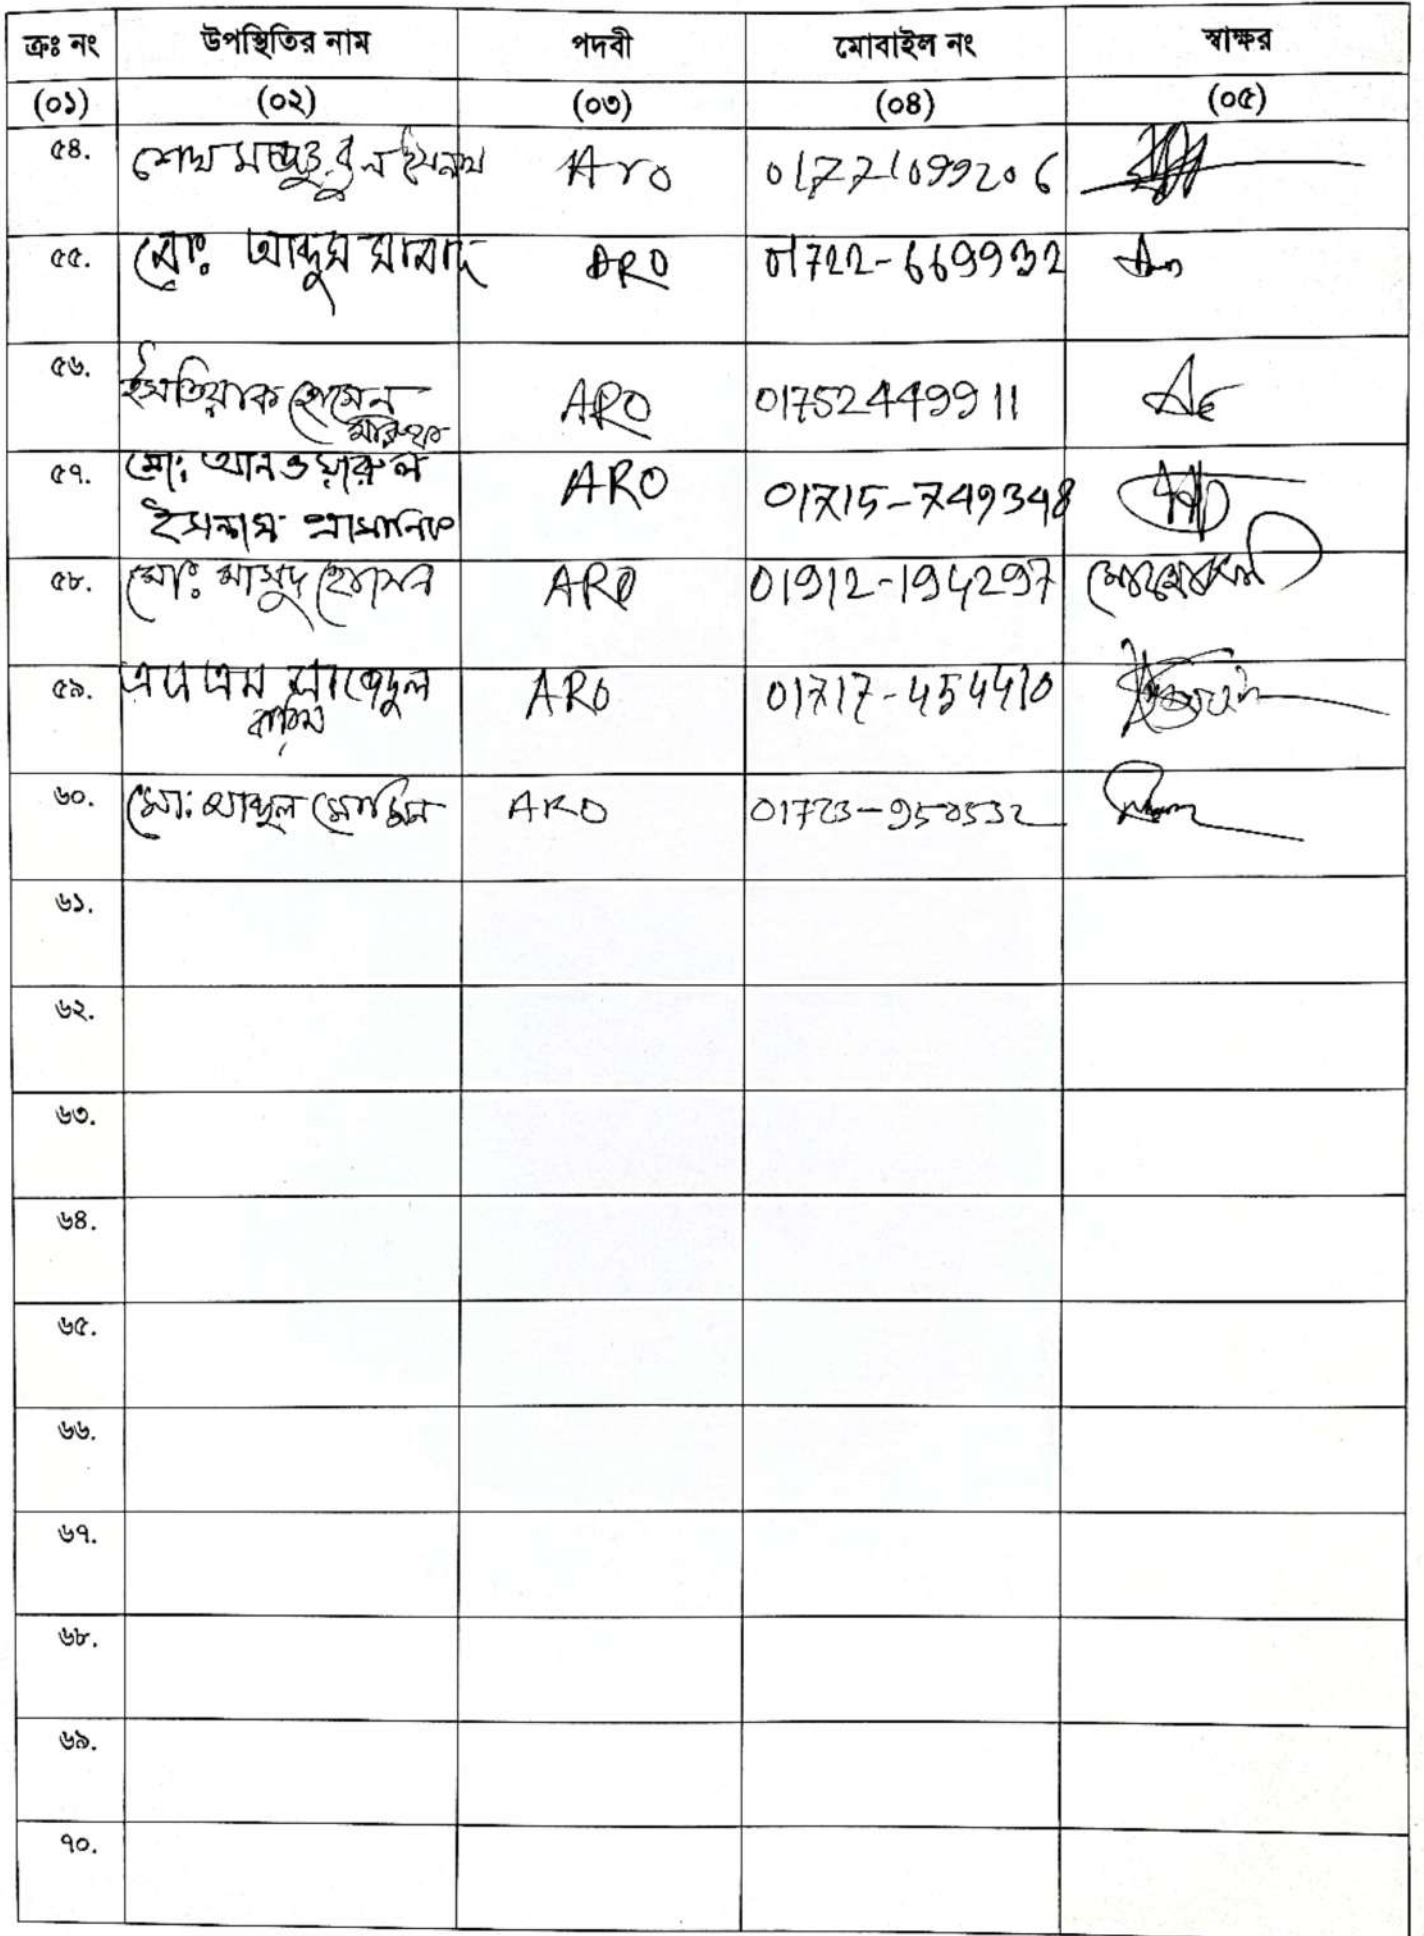 ক্রঃ নং উপস্থিতির নাম পদবী মোবাইল নং স্বাক্ষর
(০১) (০২) (০৩) (০৪) (০৫)
৫৪. শেখ ইসলাম Aro 01771099206
৫৫. মোঃ আব্দুস সামাদ ARO 01722-669932
৫৬. ইসতিয়াক হোসেন ARO 01752449911
মারুফ
৫৭. মোঃ আনওয়ারুল ARO 01715-749348
ইসলাম প্রামানিক
৫৮. মোঃ মাসুদ হোসেন ARO 01912-194297
৫৯. এস এম ARO 01717-454410
করিম
৬০. মোঃ আব্দুল মোমিন ARO 01723-950532
৬১.
৬২.
৬৩.
৬৪.
৬৫.
৬৬.
৬৭.
৬৮.
৬৯.
৭০.